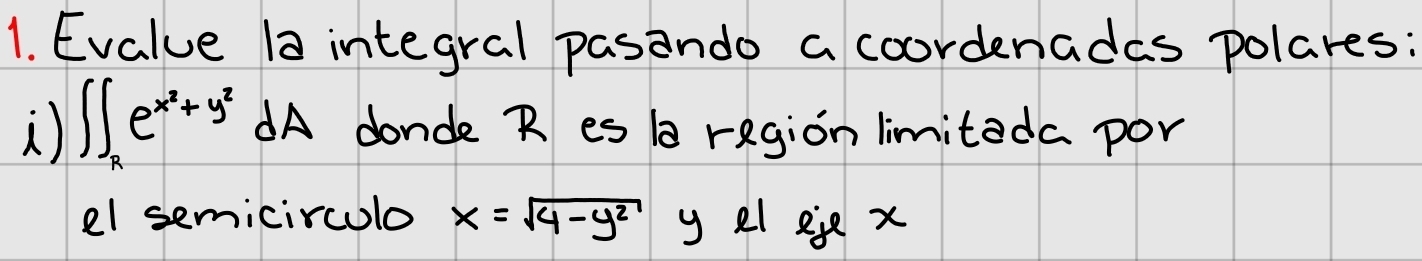 1. Evalue la integral pasando a coordenadas polares:
i) ∬_R e^{x²+y²} dA donde R es la región limitada por
el semicirculo x = √(4-y²) y el eje x